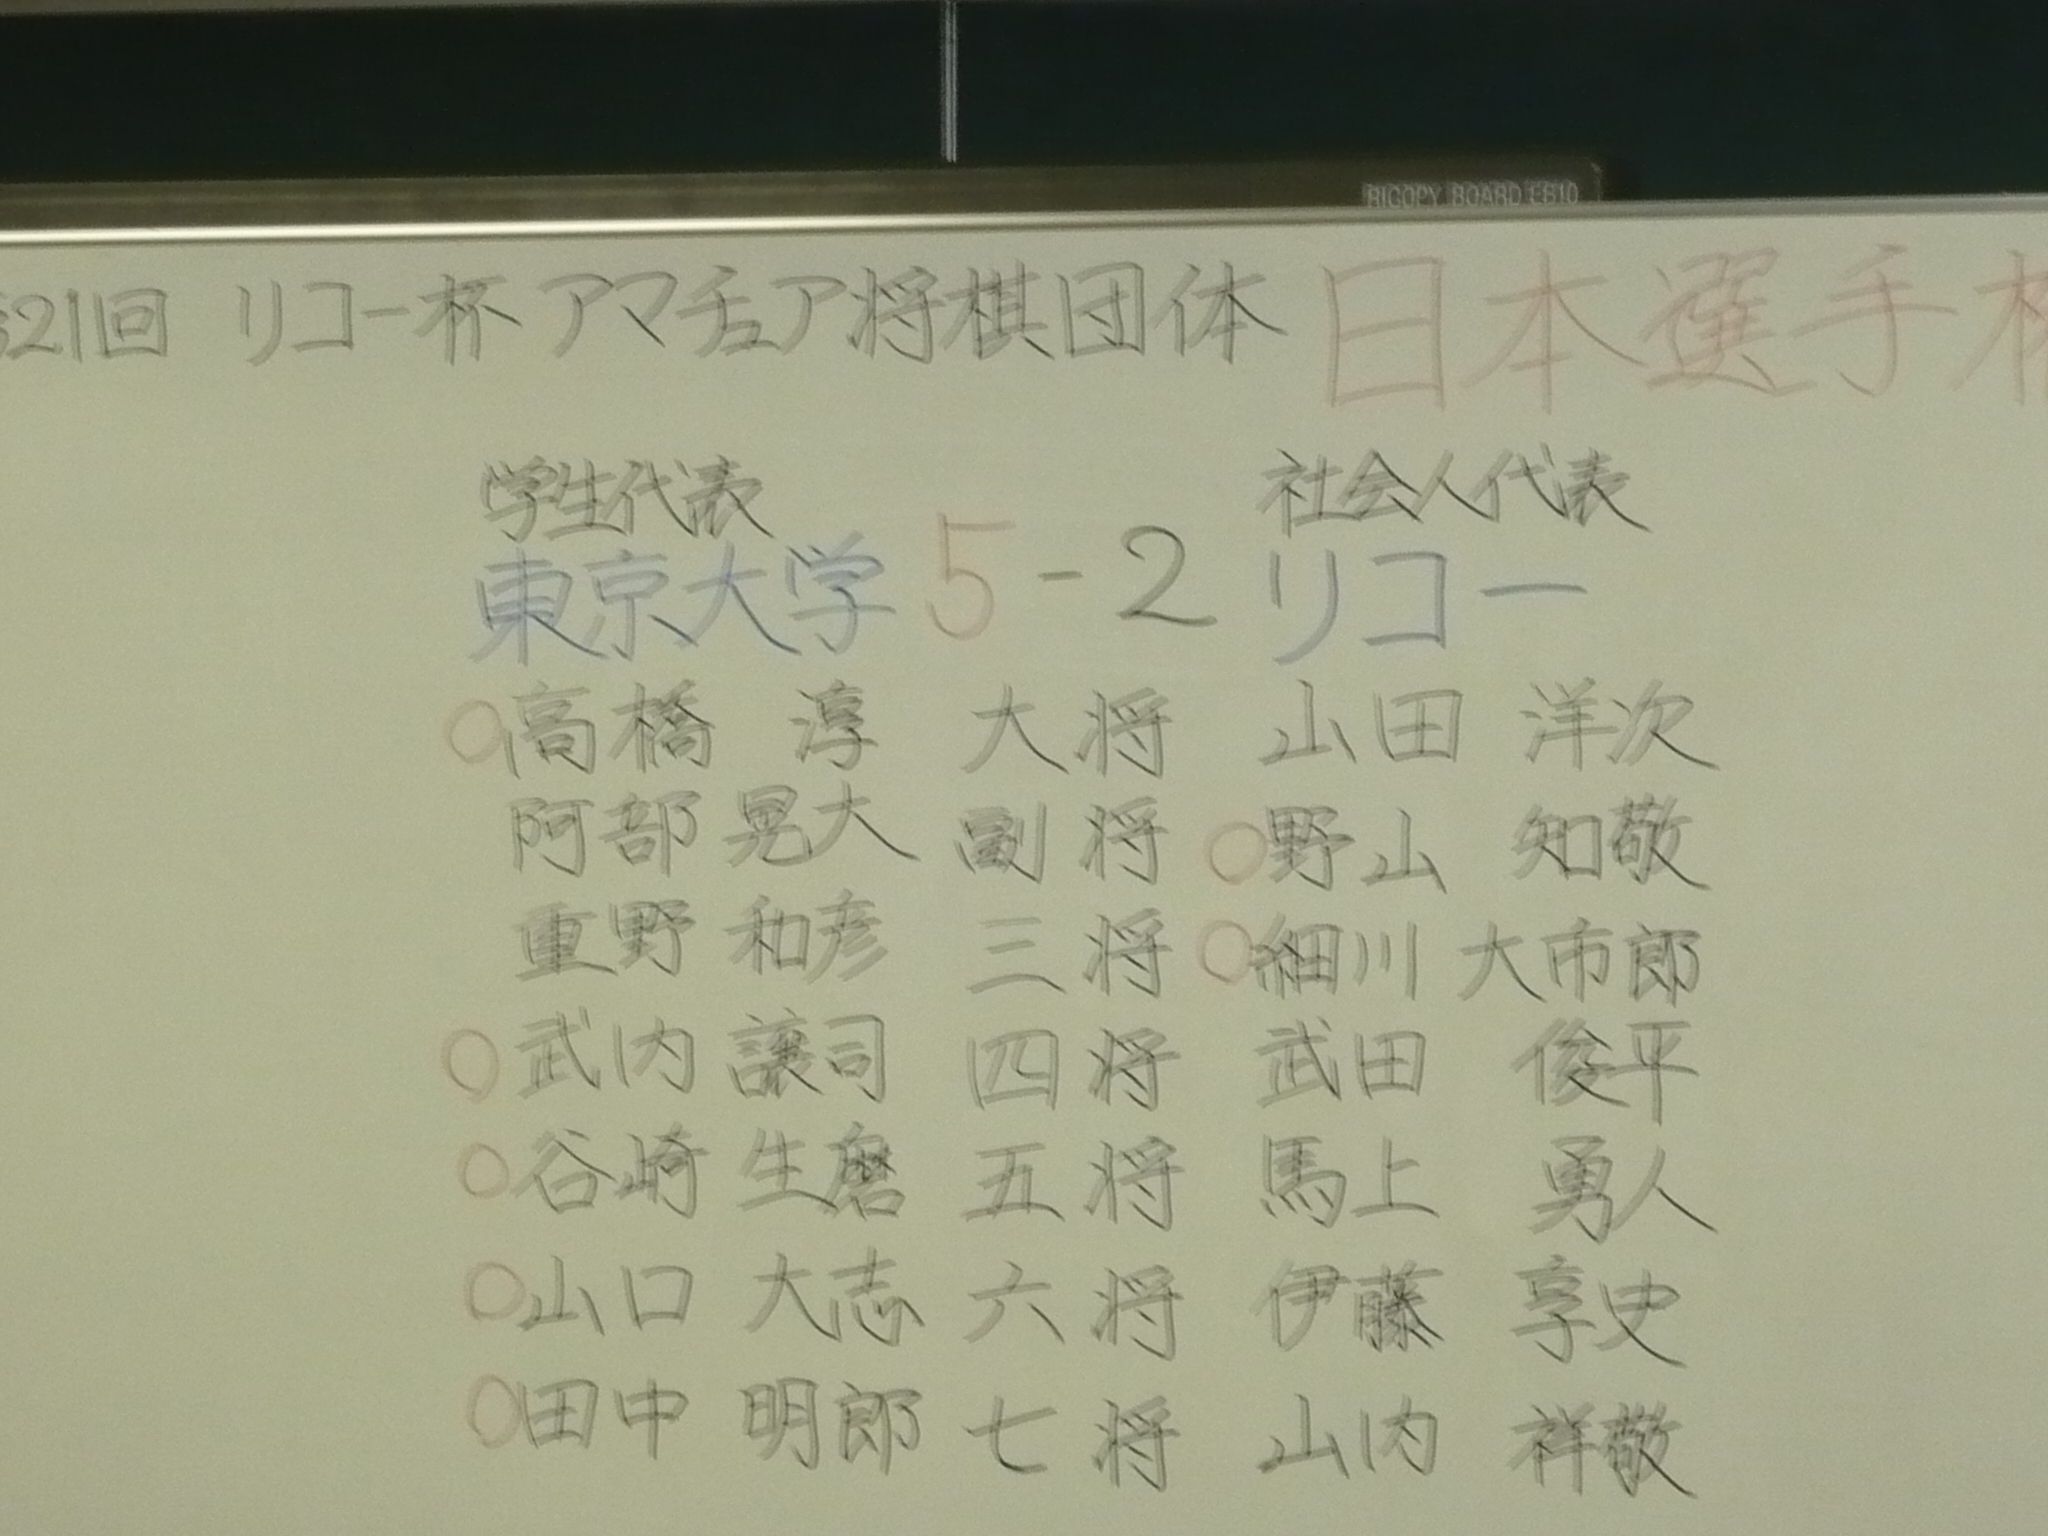 RICOPY BOARD EB10
第21回 リコー杯 アマチュア将棋団体 日本選手権
学生代表 社会人代表
東京大学 5-2 リコー
○高橋 淳 大将 山田 洋次
阿部 晃大 副将 ○野山 知敬
重野 和彦 三将 ○細川 大市郎
○武内 譲司 四将 武田 俊平
○谷崎 生磨 五将 馬上 勇人
○山口 大志 六将 伊藤 享史
○田中 明郎 七将 山内 祥敬